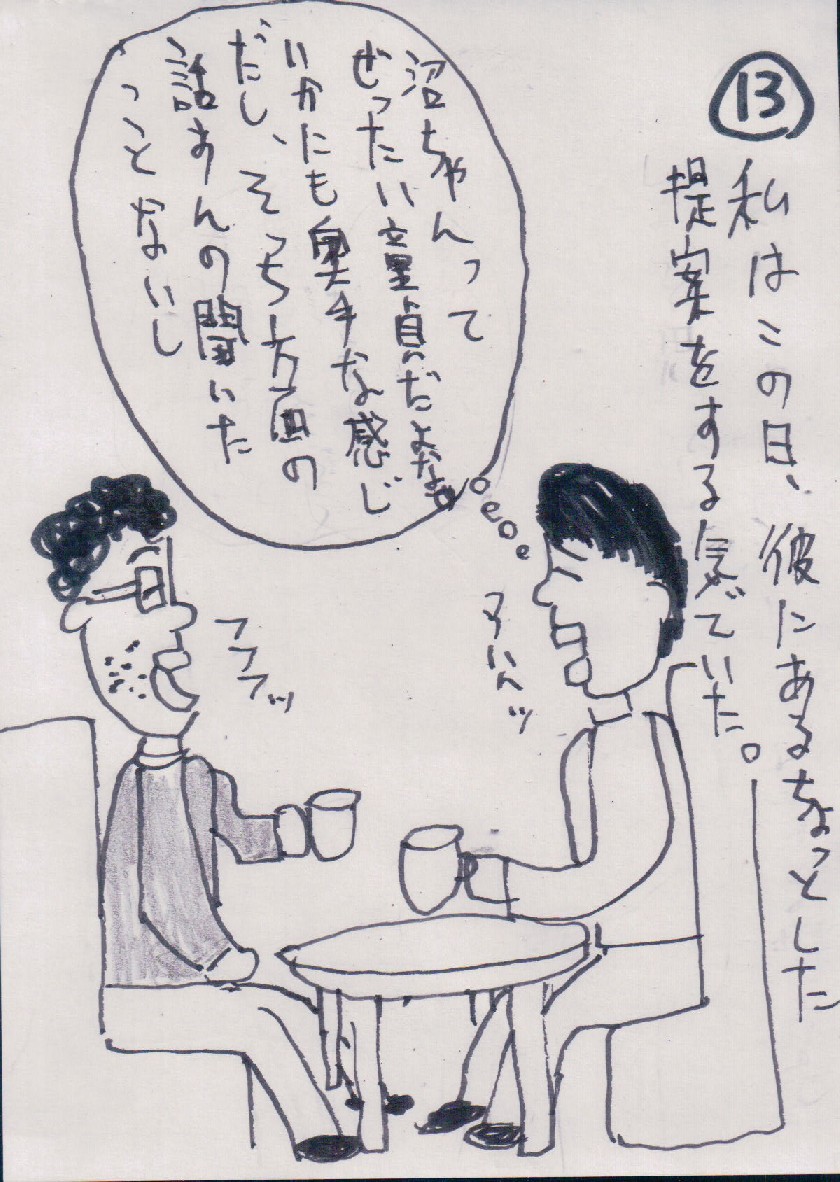 ⑬
私はこの日、彼にあるちょっとした
提案をする気でいた。
沼ちゃんって
ぜったい童貞だよな。
いかにも奥手な感じ
だし、そっち方面の
話あんの聞いた
ことないし
フフフッ